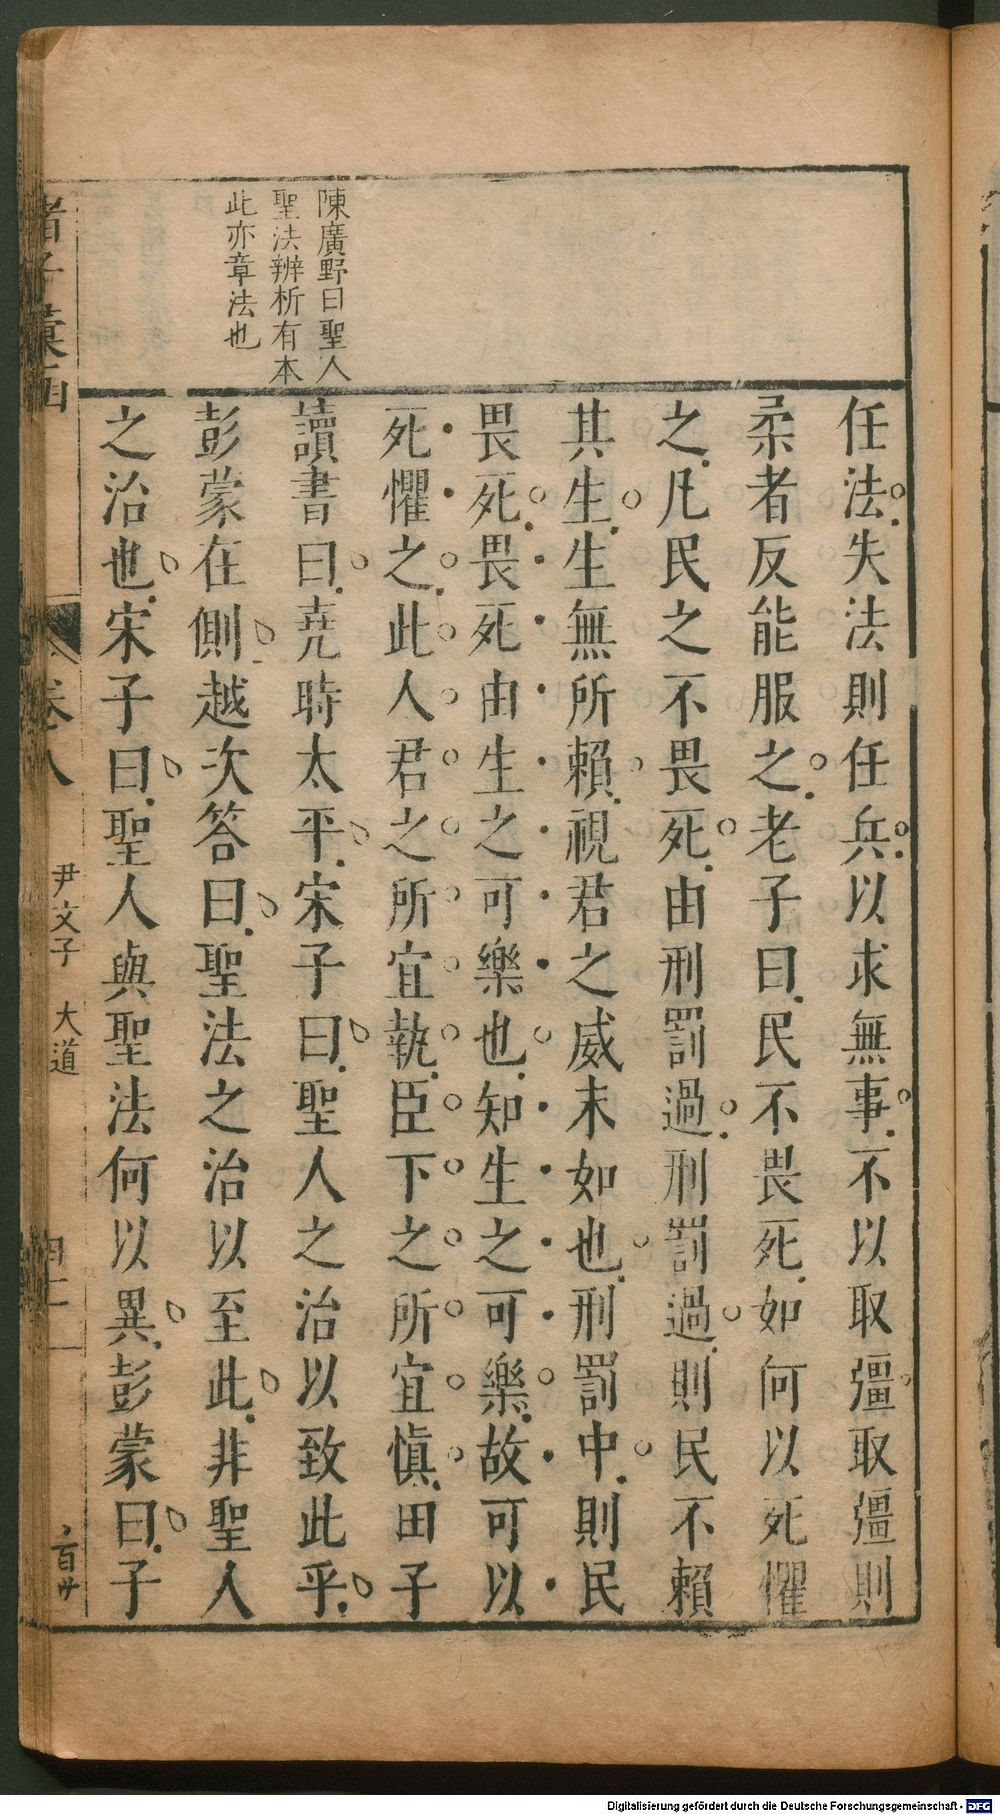 陳廣野曰聖人
聖法辨析有本
此亦章法也
任法失法則任兵以求無事不以取彊取彊則
柔者反能服之老子曰民不畏死如何以死懼
之凡民之不畏死由刑罰過刑罰過則民不賴
其生生無所賴視君之威末如也刑罰中則民
畏死畏死由生之可樂也知生之可樂故可以
死懼之此人君之所宜執臣下之所宜慎田子
讀書曰堯時太平宋子曰聖人之治以致此乎
彭蒙在側越次答曰聖法之治以至此非聖人
之治也宋子曰聖人與聖法何以異彭蒙曰子
諸子彙函
卷八
尹文子 大道
Digitalisierung gefördert durch die Deutsche Forschungsgemeinschaft - DFG